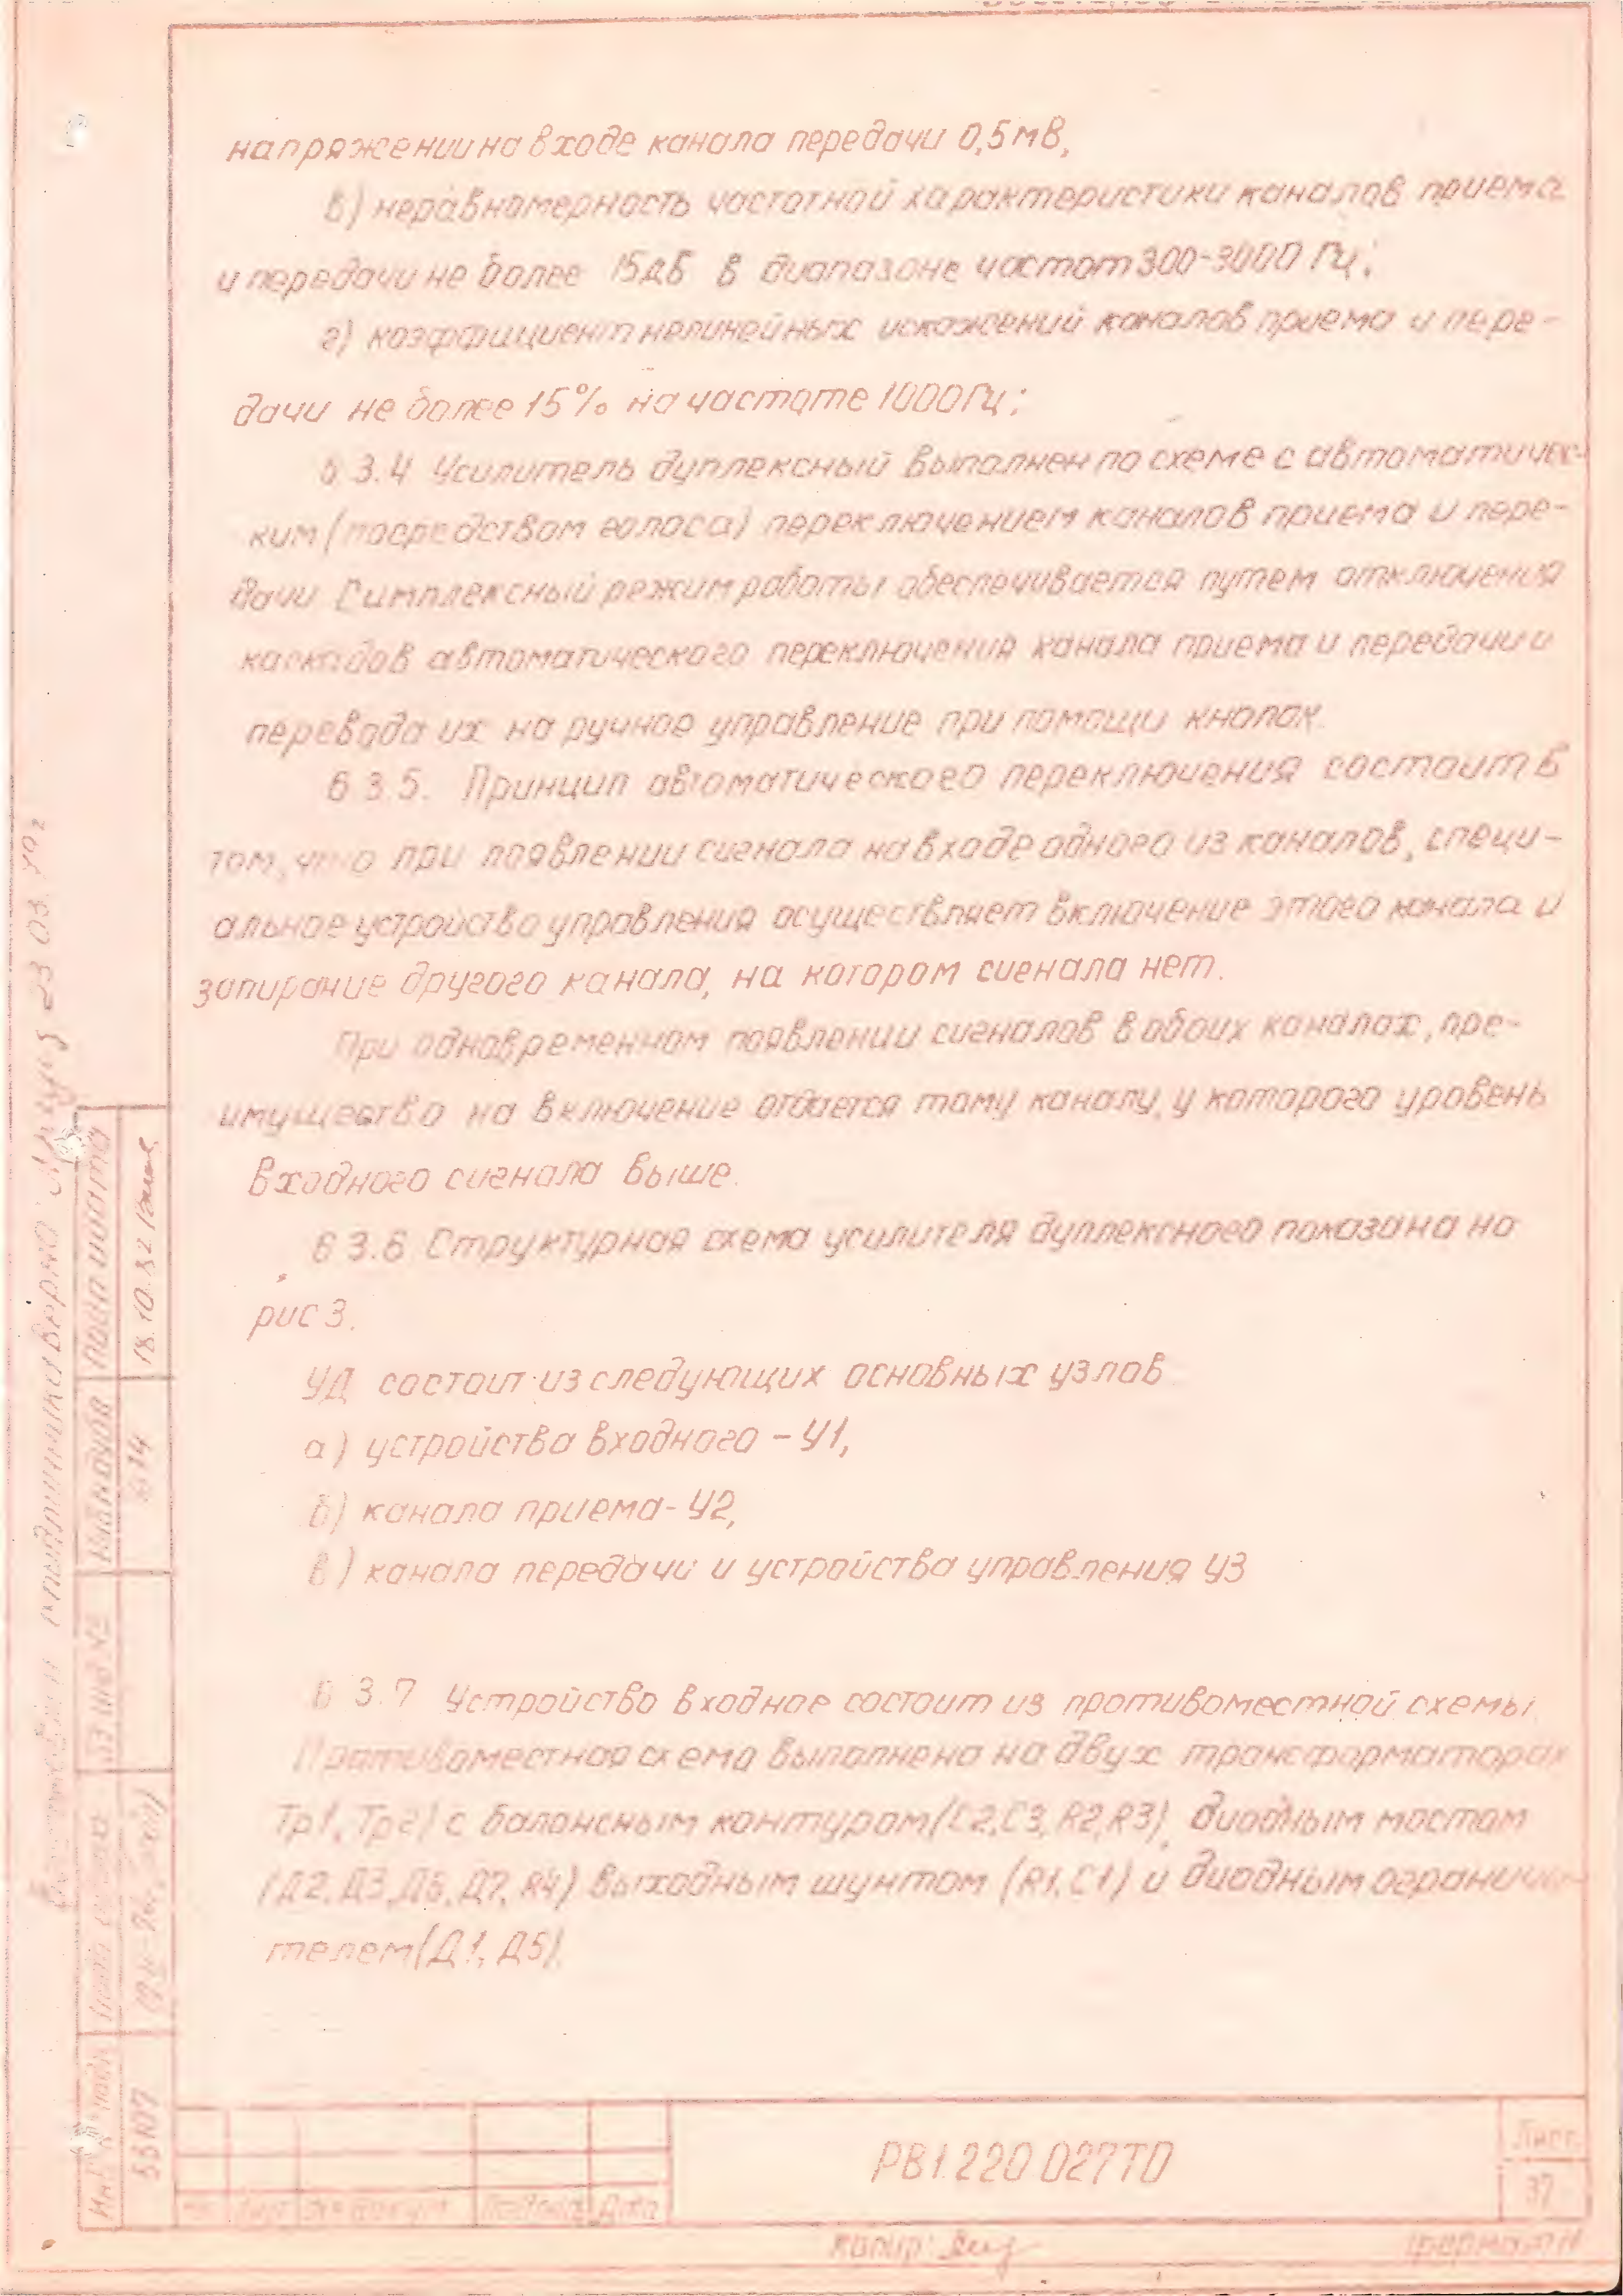 напряжении на входе канала передачи 0,5 мВ,
в) неравномерность частотной характеристики каналов приема
и передачи не более 15дБ в диапазоне частот 300-3000 Гц;
г) коэффициент нелинейных искажений каналов приема и пере-
дачи не более 15% на частоте 1000Гц;
6 3.4 Усилитель дуплексный выполнен по схеме с автоматичес-
ким (посредством голоса) переключением каналов приема и пере-
дачи Симплексный режим работы обеспечивается путем отключения
каскадов автоматического переключения канала приема и передачи и
перевода их на ручное управление при помощи кнопок
6 3.5. Принцип автоматического переключения состоит в
том, что при появлении сигнала на входе одного из каналов, специ-
альное устройство управления осуществляет включение этого канала и
запирание другого канала, на котором сигнала нет.
При одновременном появлении сигналов в обоих каналах, пре-
имущество на включение отдается тому каналу, у которого уровень
входного сигнала выше.
6 3.6 Структурная схема усилителя дуплексного показана на
рис 3.
УД состоит из следующих основных узлов
а) устройства входного - У1,
б) канала приема - У2,
в) канала передачи и устройства управления У3
6 3.7 Устройство входное состоит из противоместной схемы
Противоместная схема выполнена на двух трансформаторах
Тр1, Тр2) с балансным контуром (С2,С3, R2,R3), диодным мостом
(Д2, Д3, Д6, Д7, R4) выходным шунтом (R1, С1) и диодным ограничи-
телем (Д1, Д5)
РВ1.220 027ТО
Лист
37
Лист
№ докум
Подпись
Дата
Копир:
Формат 11
Подп и дата
18.10.82
Инв № дубл
Вз инв №
Инв № подл
верна
23 03